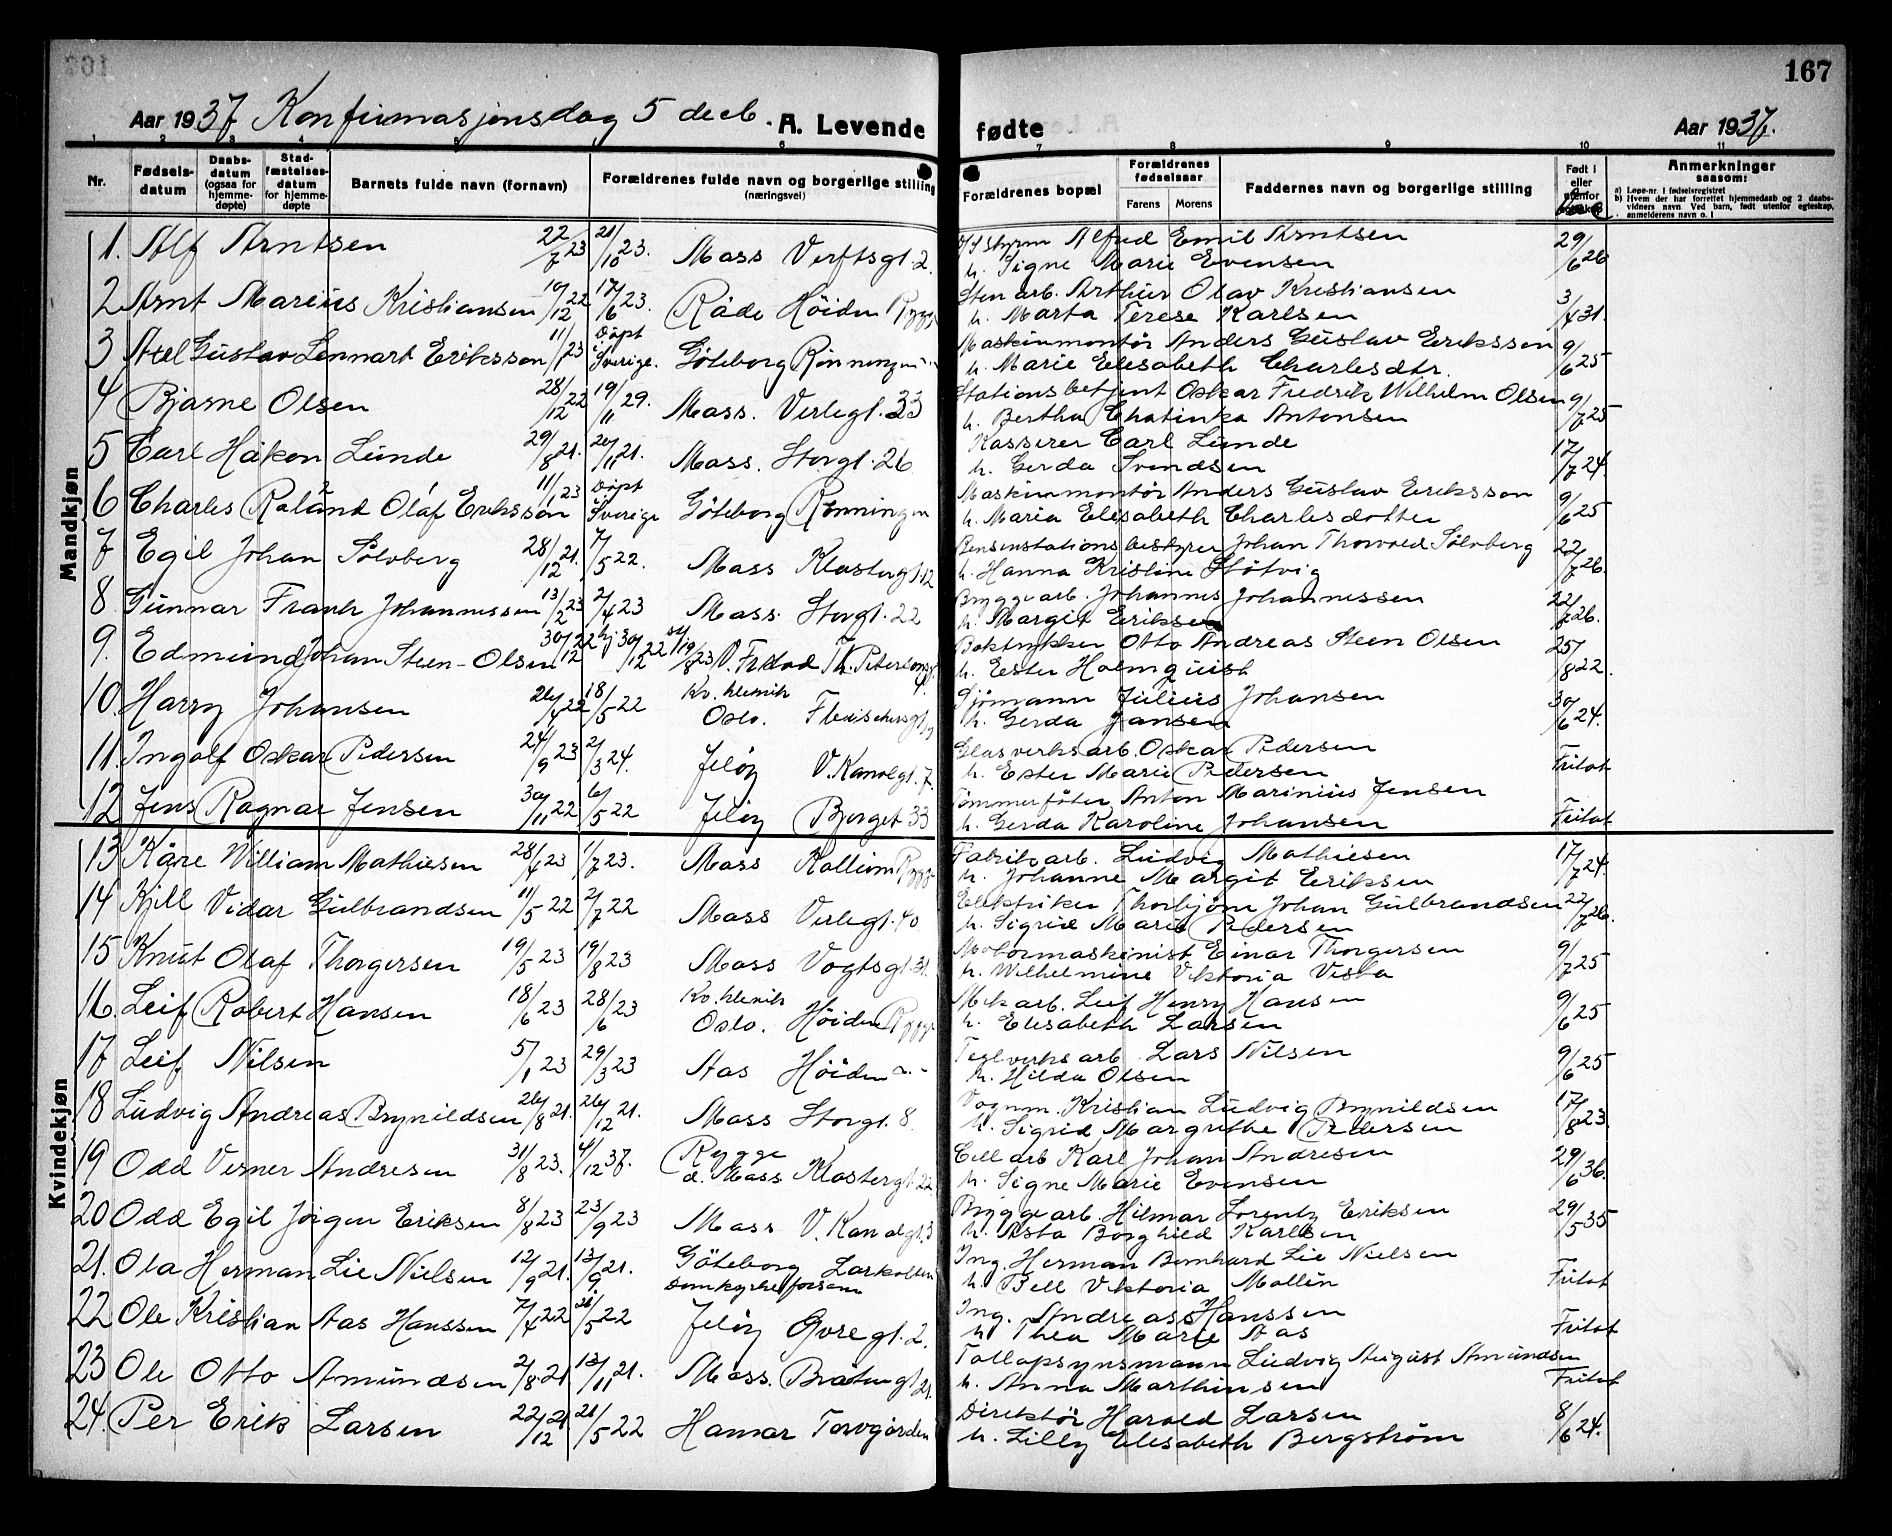 167
Aar 1937 Konfirmasjonsdag 5 decb. A. Levende fødte Aar 1937.
1 2 3 4 5 6 7 8 9 10 11
Nr. Fødsels-datum Daabs-datum (ogsaa for hjemme-døpte) Stad-fæstelses-datum for hjemme-døpte Barnets fulde navn (fornavn) Forældrenes fulde navn og borgerlige stilling (næringsvei) Forældrenes bopæl Forældrenes fødselsaar Farens Morens Faddernes navn og borgerlige stilling Født i eller utenfor Anmerkninger saasom:
a) Løpe-nr. i fødselsregistret
b) Hvem der har forrettet hjemmedaab og 2 daabs-vidners navn. Ved barn, født utenfor egteskap, anmelderens navn o. l
Mandkjøn
1. Alf Arntsen 22/7 23 21/10 23. Moss Verftsgt. 2. Styrm Alfred Emil Arntsen 29/6 26
h. Signe Marie Evensen
2 Arnt Marius Kristiansen 10/12 22 17/6 23. Råde Høiden Rygge Sten arb. Arthur Olav Kristiansen 3/4 31.
h. Marta Terese Karlsen
3 Axel Gustav Lennart Eriksson 11/1 23 Døpt i Sverige. Göteborg Rønningen Maskinmontør Anders Gustav Eriksson 9/6 25
h. Marie Elesabeth Charlesdtr.
4 Bjarne Olsen 28/12 22 19/11 29. Moss. Verlegt. 33 Stationsbetjent Oskar Fredrik Wilhelm Olsen 9/7 25
h. Bertha Chatinka Antonsen
5 Carl Håkon Lunde 29/8 21. 20/11 21. Moss. Storgt. 26 Kasserer Carl Lunde 17/7 24.
h. Gerda Svendsen
6 Charles Roland Olof Eriksson 11/1 23 Døpt Sverige Göteborg Rønningen Maskinmontør Anders Gustav Eriksson 9/6 25
h. Maria Elesabeth Charlesdotter
7 Egil Johan Sølvberg 28/12 21. 7/5 22. Moss Klostergt. 12 Bensinstationsbestyrer Johan Thorvald Sølvberg 22/7 26.
h. Hanna Kristine Støtvig
8. Gunnar Frank Johannessen 13/2 23 2/4 23 Moss. Storgt. 22 Bryggearb. Johannes Johannessen 22/7 26.
h. Margit Eriksen
9. Edmund Johan Steen-Olsen 30/12 22 hj 30/12 22 19/8 23 V. Fredad Th. Petersonsgt 4. Boktrykker Otto Andreas Steen Olsen 25/8 22.
h. Ester Holmquist
10. Harry Johansen 26/4 22 18/5 22 Kv. klinik Oslo. Sjømann Julius Johansen 30/6 24.
h. Gerda Jansen
11. Ingolf Oskar Pedersen 24/9 23 2/3 24. Jeløy V. Kanalgt. 7. Glasverksarb. Oskar Pedersen Fritat
h. Ester Marie Pedersen
12 Jens Ragnar Jensen 30/11 22 6/5 22 Jeløy Bjerget 33 Tømmerfløter Anton Marinius Jensen
h. Gerda Karoline Johansen Fritat
Kvindekjøn
13 Kåre William Mathiesen 28/4 23 1/7 23. Moss Kallum Rygge Fabrikarb. Ludvig Mathiesen 17/7 24.
h. Johanne Margit Eriksen
14 Kjell Vidar Gulbrandsen 11/5 22 2/7 22 Moss Verlegt. 40 Elektriker Thorbjørn Johan Gulbrandsen 22/7 26.
h. Sigrid Marie Pedersen
15 Knut Olaf Thorgersen 19/5 23 19/8 23 Moss Vogtsgt. 31. Motormaskinist Einar Thorgersen 9/7 25
h. Wilhelmine Viktoria Vista
16. Leif Robert Hansen 18/6 23 28/6 23 Kv. klinik Oslo. Høiden Rygge Mek arb. Leif Henry Hansen 9/6 25
h. Elisabeth Larsen
17 Leif Nilsen 5/1 23 29/3 23 Aas Høiden Teglverksarb Lars Nilsen 9/6 25
h. Hilda Olsen
18 Ludvig Andreas Brynildsen 26/8 21. 26/12 21. Moss Storgt. 8. Vognm. Kristian Ludvig Brynildsen 17/8 23.
h. Sigrid Margrethe Pedersen
19 Odd Verner Andresen 31/8 23. 4/12 37. Rygge d. Moss Klostergt. 22 Cell arb Karl Johan Andresen 29/6 36.
h. Signe Marie Evensen
20 Odd Egil Jørgen Eriksen 8/8 23 23/9 23 Moss V. Kanalgt. 3 Bryggearb. Hilmar Lorentz Eriksen 29/5 35
h. Asta Borghild Karlsen
21. Ola Herman Lie Nielsen 12/9 21. 13/9 21. Göteborg Domkyrkoforsam Larkollen Ing. Herman Bernhard Lie Nielsen
h. Bell Viktoria Mollin Fritat
22 Ole Kristian Aas Hanssen 7/4 22 21/5 22 Jeløy Øvregt. 2. Ing. Andreas Hanssen
h. Thea Marie Aas Fritat
23 Ole Otto Amundsen 2/8 21 13/11 21. Moss. Bråtengt 21. Tollopsynsmann Ludvig August Amundsen
h. Anna Marthinsen Fritat
24. Per Erik Larsen 22/12 21 21/5 22 Hamar Torvgården Direktør Harald Larsen 8/6 24.
h. Lilly Elesabeth Bergstrøm